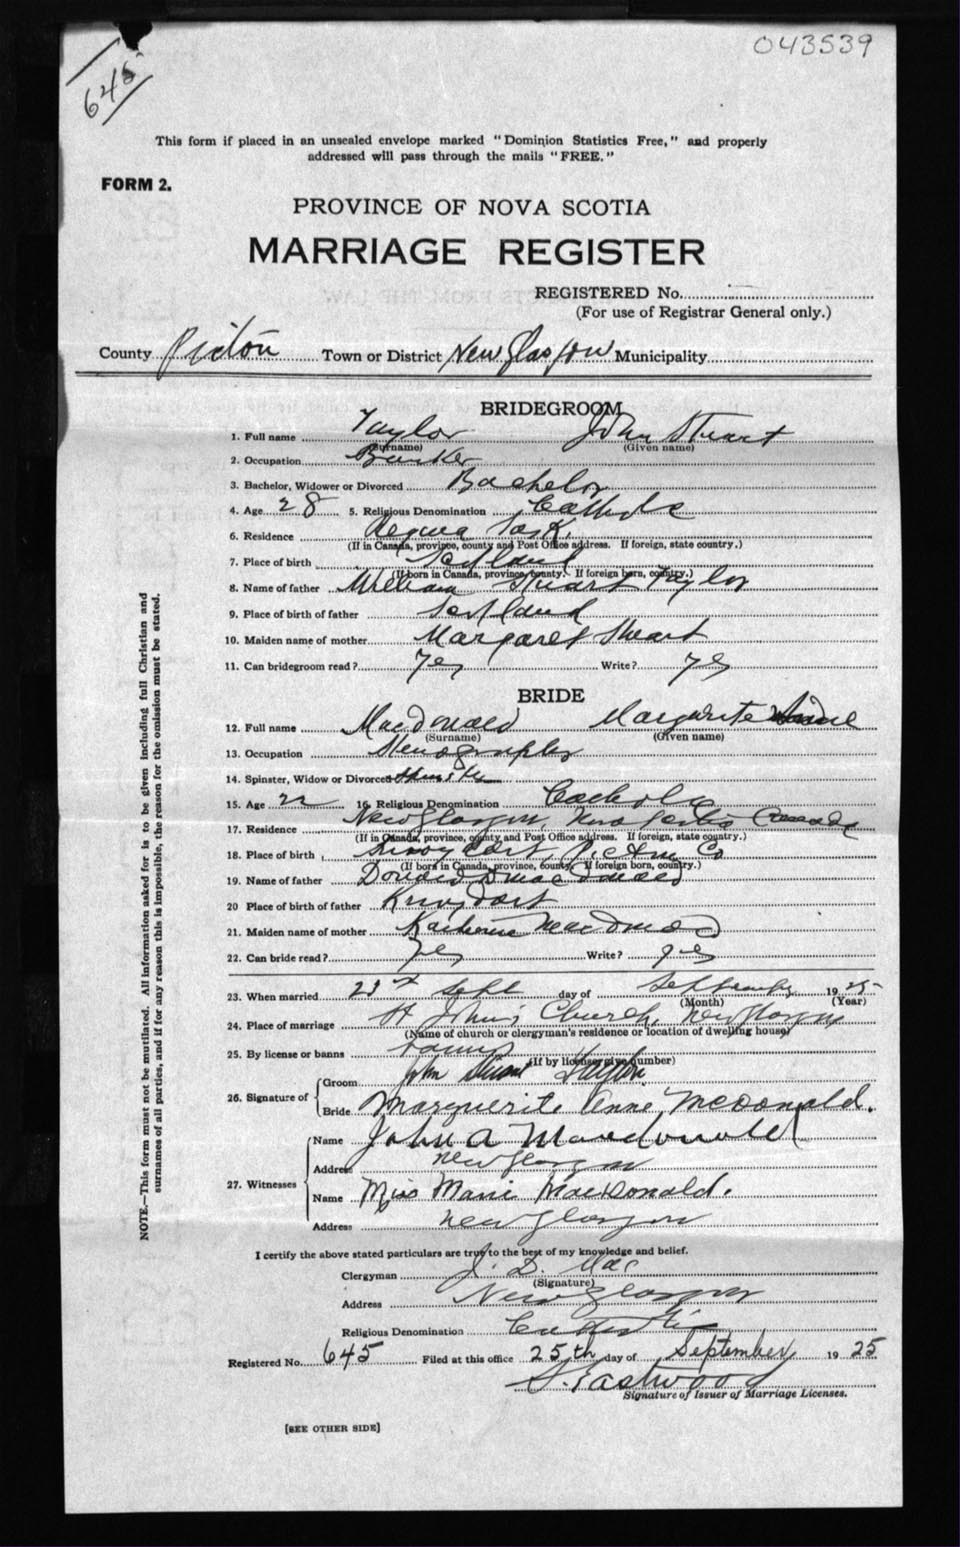 043539
645
This form if placed in an unsealed envelope marked "Dominion Statistics Free," and properly
addressed will pass through the mails "FREE."
FORM 2.
PROVINCE OF NOVA SCOTIA
MARRIAGE REGISTER
REGISTERED No.
(For use of Registrar General only.)
County Pictou Town or District New Glasgow Municipality
BRIDEGROOM
1. Full name Taylor John Stuart
(Surname) (Given name)
2. Occupation Banker
3. Bachelor, Widower or Divorced Bachelor
4. Age 28 5. Religious Denomination Catholic
6. Residence Regina Sask.
(If in Canada, province, county and Post Office address. If foreign, state country.)
7. Place of birth Scotland
(If born in Canada, province, county. If foreign born, country.)
8. Name of father William Stuart Taylor
9. Place of birth of father Scotland
10. Maiden name of mother Margaret Stuart
11. Can bridegroom read? Yes Write? yes
BRIDE
12. Full name MacDonald Margurite Anne
(Surname) (Given name)
13. Occupation Stenographer
14. Spinster, Widow or Divorced Spinster
15. Age 22 16. Religious Denomination Catholic
17. Residence New Glasgow, Nova Scotia Canada
(If in Canada, province, county and Post Office address. If foreign, state country.)
18. Place of birth Pictou Co
(If born in Canada, province, county. If foreign born, country.)
19. Name of father Donald D MacDonald
20 Place of birth of father
21. Maiden name of mother Katherine MacDonald
22. Can bride read? Yes Write? yes
23. When married 23rd Sept day of September 1925
(Month) (Year)
24. Place of marriage St John's Church, New Glasgow
(Name of church or clergyman's residence or location of dwelling house)
25. By license or banns banns
(If by license give number)
26. Signature of
Groom John Stuart Taylor
Bride Marguerite Anne McDonald.
27. Witnesses
Name John A Macdonald
Address New Glasgow
Name Miss Marie MacDonald.
Address New Glasgow
I certify the above stated particulars are true to the best of my knowledge and belief.
Clergyman J. D. Mac
(Signature)
Address New Glasgow
Religious Denomination Catholic
Registered No. 645 Filed at this office 25th day of September 1925
S. Eastwood
Signature of Issuer of Marriage Licenses.
[SEE OTHER SIDE]
NOTE.—This form must not be mutilated. All information asked for is to be given including full Christian and
surnames of all parties, and if for any reason this is impossible, the reason for the omission must be stated.